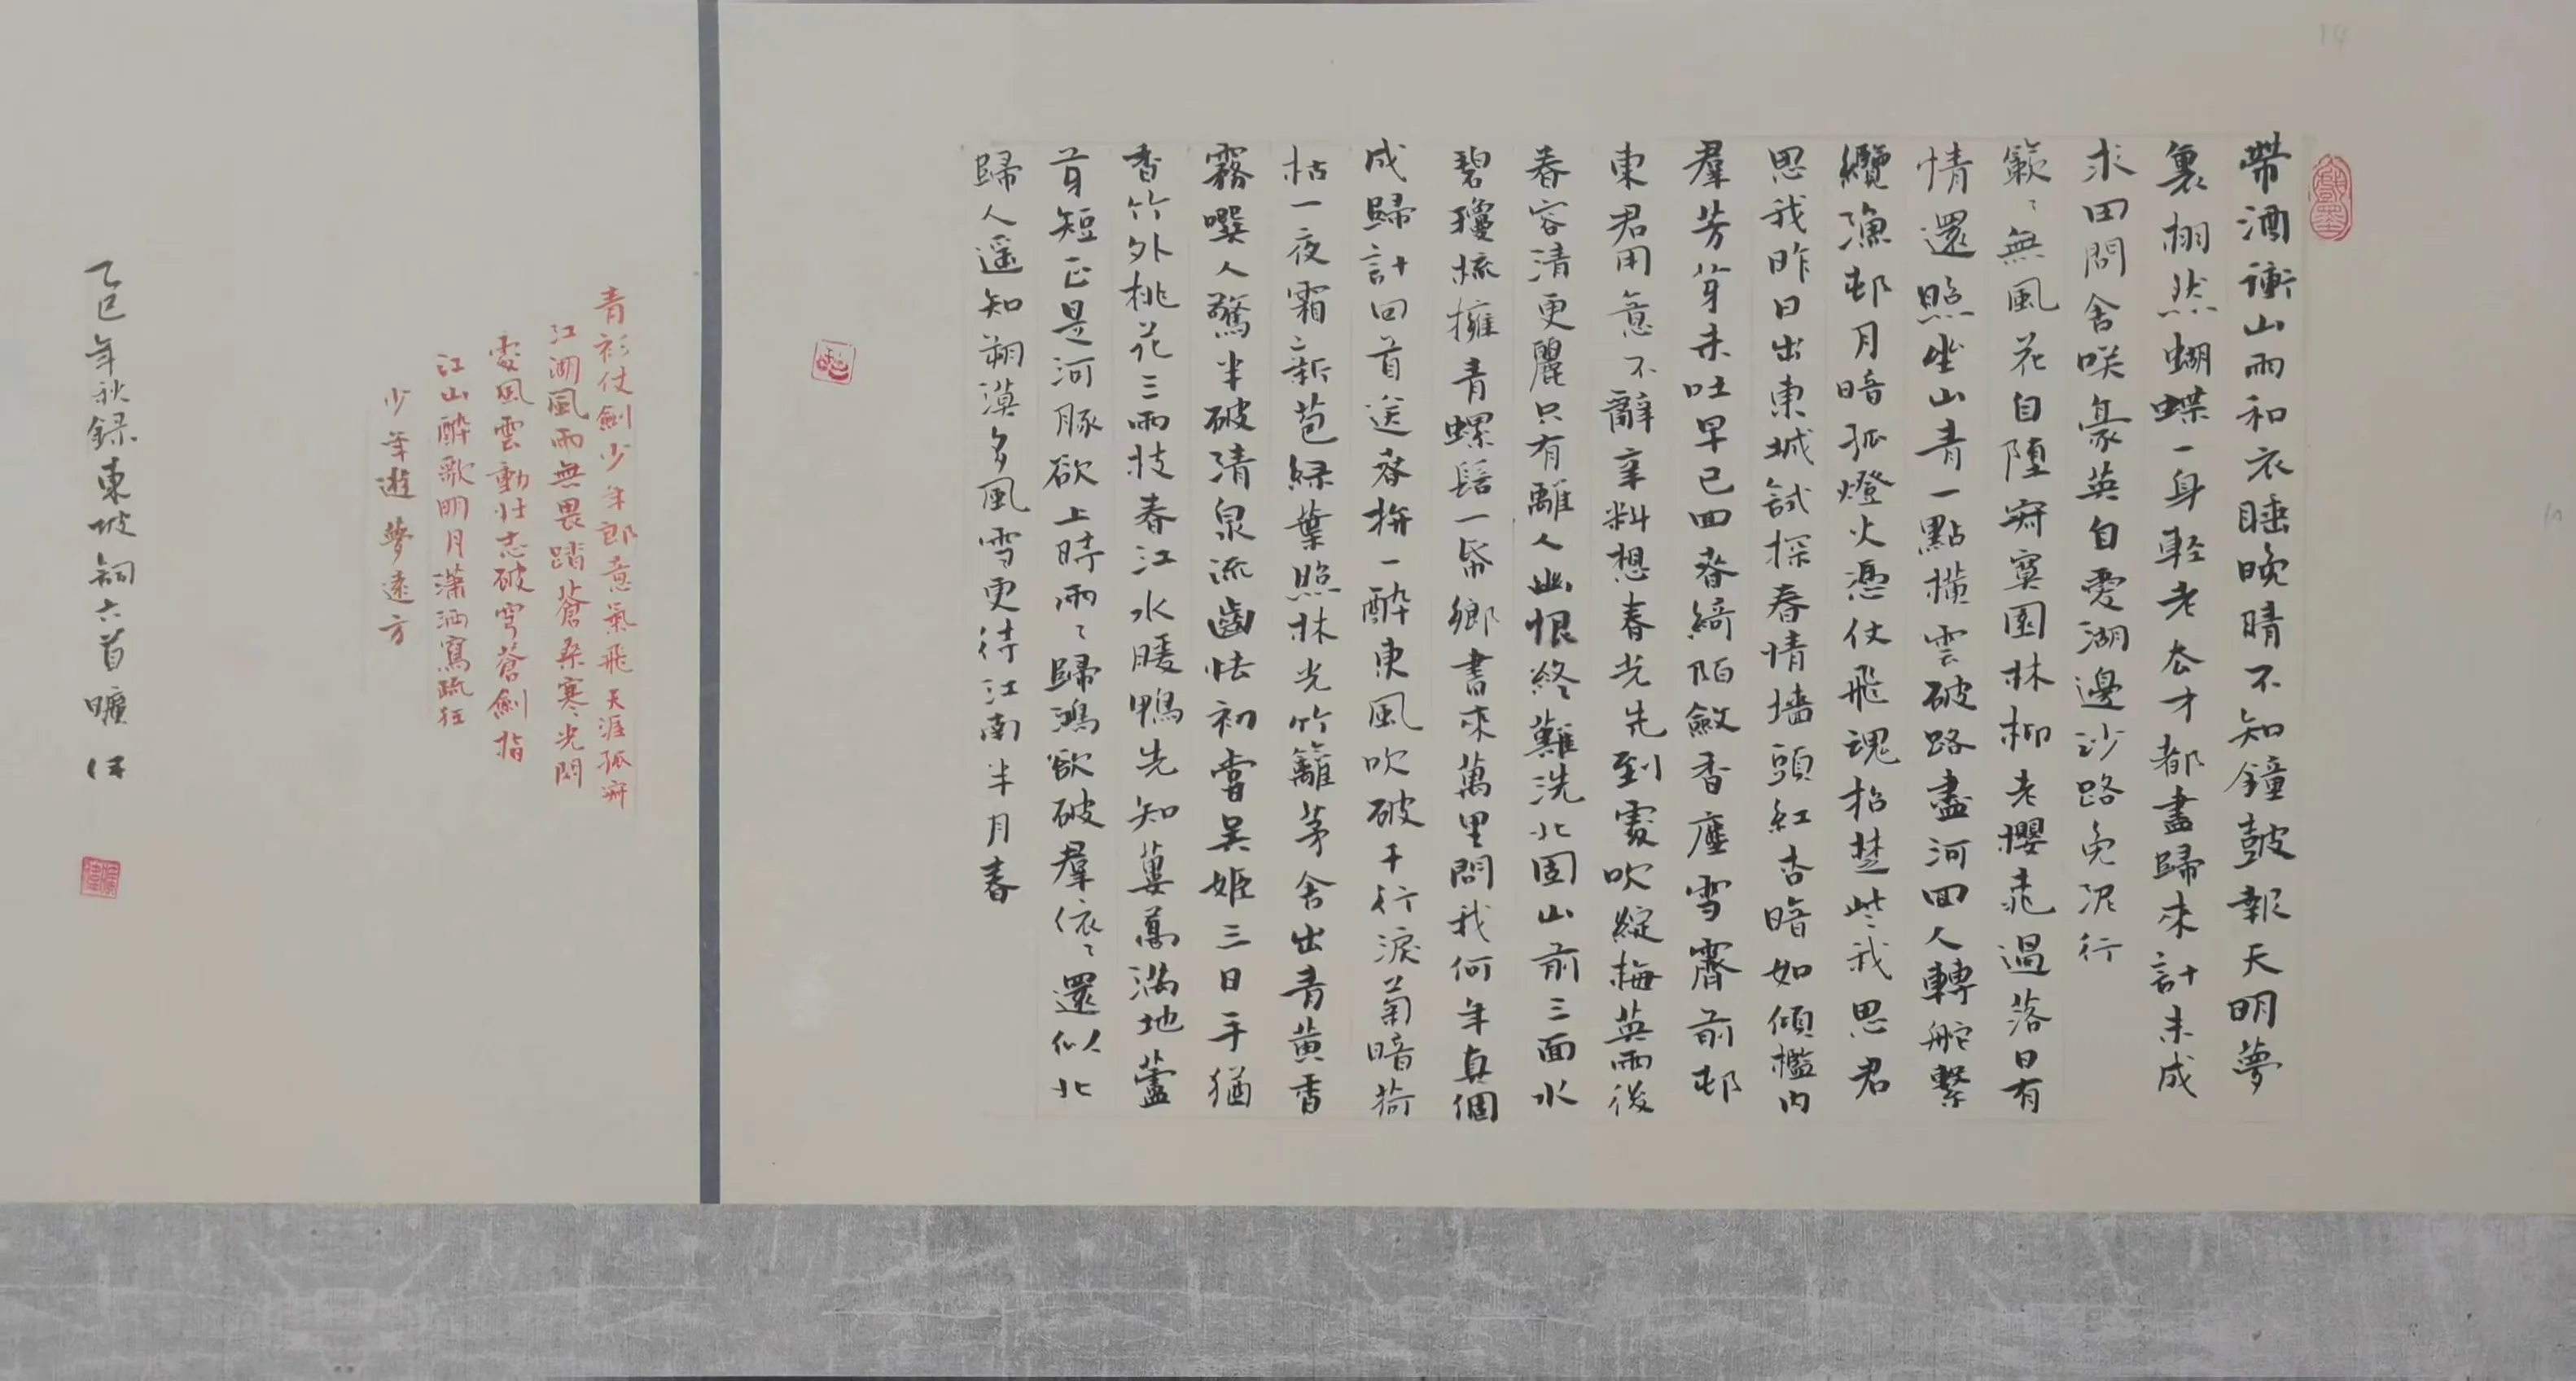 帶酒衝山雨和衣睡晚晴不知鐘鼓報天明夢
裏栩然蝴蝶一身輕老去才都盡歸來計未成
求田問舍咲豪英自愛湖邊沙路免泥行
簌〻無風花自墮寂寞園林柳老櫻桃過落日有
情還照坐山青一點橫雲破路盡河回人轉舵繫
纜漁邨月暗孤燈火憑仗飛魂招楚些我思君
思我昨日出東城試探春情墻頭紅杏暗如傾檻內
羣芳芽未吐早已回春綺陌斂香塵雪霽前邨
東君用意不辭辛料想春光先到處吹綻梅英雨後
春容清更麗只有離人幽恨終難洗北固山前三面水
碧瓊梳擁青螺髻一帋鄉書來萬里問我何年真個
成歸計回首送春拚一醉東風吹破千行淚菊暗荷
枯一夜霜新苞綠葉照林光竹籬茅舍出青黃香
霧噀人驚半破清泉流齒怯初嘗吳姬三日手猶
香竹外桃花三兩枝春江水暖鴨先知蔞蒿滿地蘆
芽短正是河豚欲上時兩〻歸鴻欲破羣依〻還似北
歸人遥知朔漠多風雪更待江南半月春
青衫仗劍少年郎意氣飛天涯孤寂
江湖風雨無畏踏蒼桑寒光閃
處風雲動壯志破穹蒼劍指
江山醉歌明月瀟洒寫疏狂
少年遊夢遠方
乙巳年秋録東坡詞六首曠伢